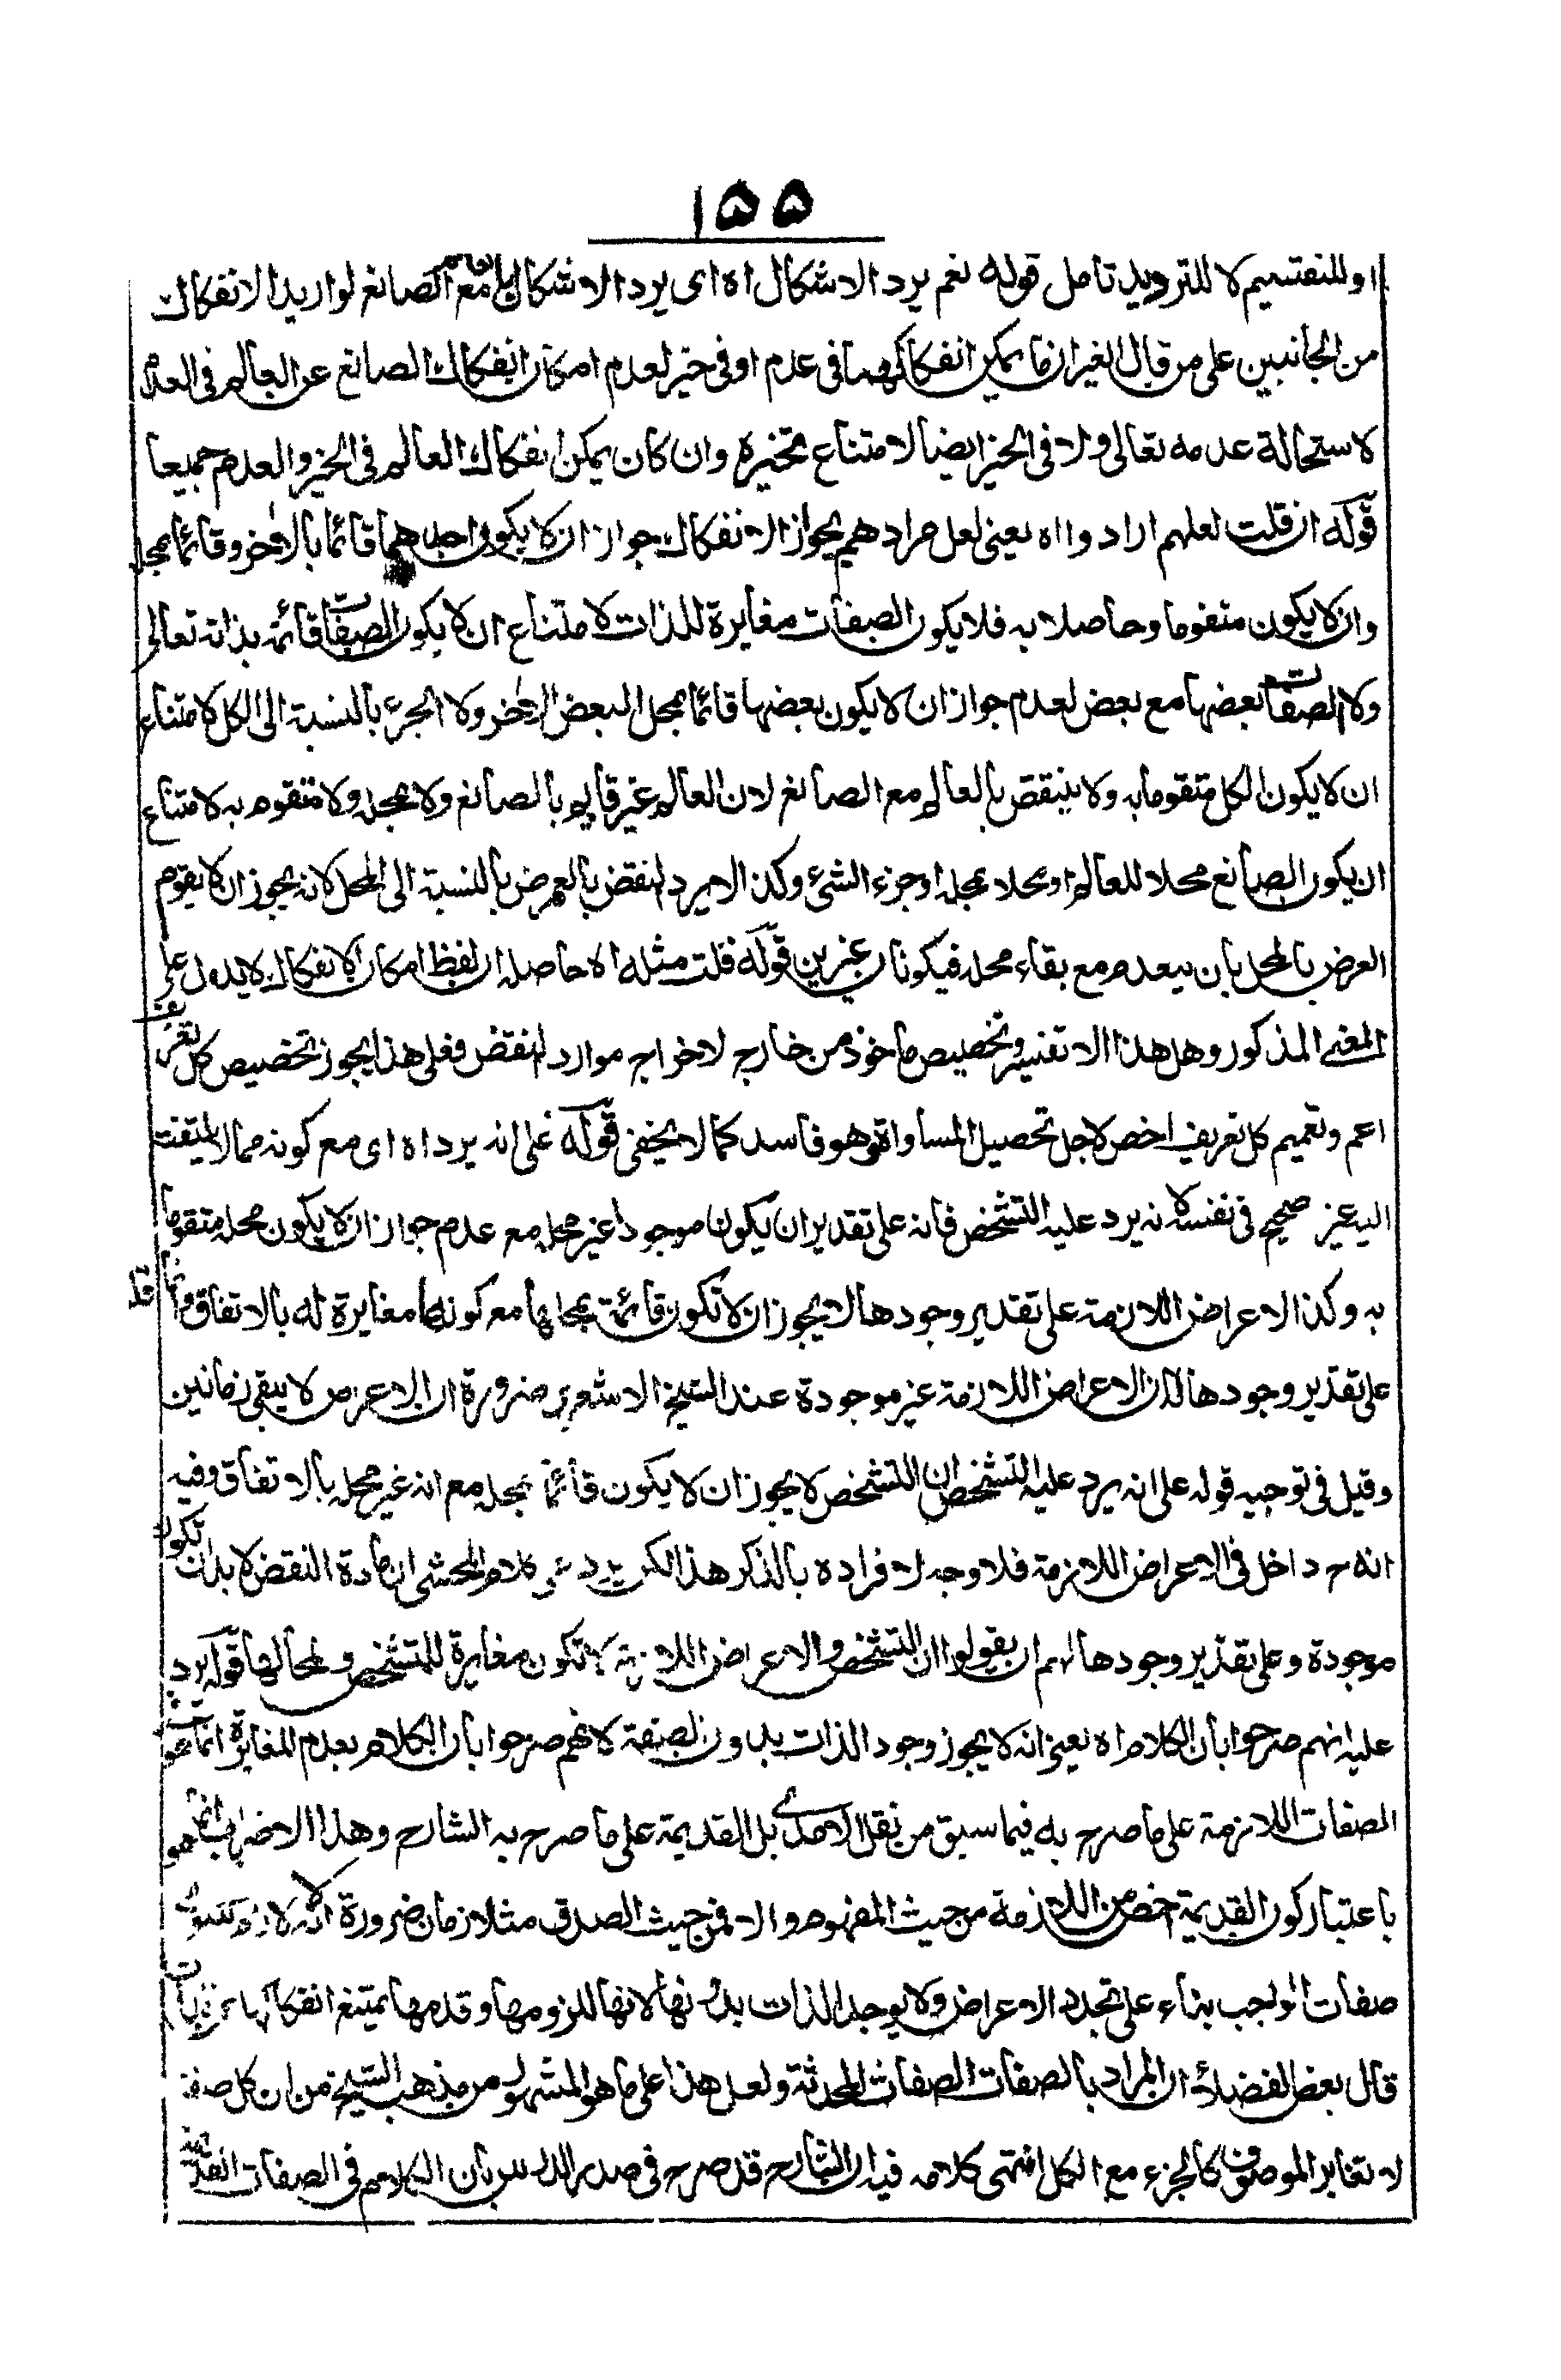 ١٥٥
او للتقسيم لا للترديد تامل قوله نعم يرد الاشكال اه اى يرد الاشكال بالعالم مع الصانع لو اريد الانفكاك
من الجانبين على من قال الغيران ما يمكن انفكاكهما فى عدم او فى حيز لعدم امكان انفكاك الصانع عن العالم فى العدم
لاستحالة عدمه تعالى ولا فى الحيز ايضا لامتناع تحيزه وان كان يمكن انفكاك العالم فى الحيز والعدم جميعا
قوله ان قلت لعلهم ارادوا اه يعنى لعل مرادهم بجواز الانفكاك جواز ان لا يكون احدهما قائما بالاخر وقائما بمحله
وان لا يكون متقوما وحاصلا به فلا يكون الصفات مغايرة للذات لامتناع ان لا يكون الصفات قائمة بذاته تعالى
ولا الصفات بعضها مع بعض لعدم جواز ان لا يكون بعضها قائما بمحل البعض الاخر ولا الجزء بالنسبة الى الكل لامتناع
ان لا يكون الكل متقوما به ولا ينتقض بالعالم مع الصانع لان العالم غير قايم بالصانع ولا بمحله ولا متقوم به لامتناع
ان يكون الصانع محلا للعالم او محلا بمحله او جزء الشئ وكذا لا يرد النقض بالعرض بالنسبة الى المحل لانه يجوز ان لا يقوم
العرض بالمحل بان ينعدم مع بقاء محله فيكونان غيرين قوله قلت مثله اه حاصله ان لفظ امكان الانفكاك لا يدل على
المعنى المذكور وهل هذا الا تفسير وتخصيص ماخوذ من خارج لاخراج موارد النقض فعلى هذا يجوز تخصيص كل تعريف
اعم وتعميم كل تعريف اخص لاجل تحصيل المساواة وهو فاسد كما لا يخفى قوله على انه يرد اه اى مع كونه مما لا يلتفت
اليه غير صحيح فى نفسه لانه يرد عليه التشخص فانه على تقدير ان يكون موجودا غير محله مع عدم جواز ان لا يكون محله متقوما
به وكذا الاعراض اللازمة على تقدير وجودها لا يجوز ان لا تكون قائمة بمحالها مع كونها مغايرة له بالاتفاق وانما قلنا
على تقدير وجودها لان الاعراض اللازمة غير موجودة عند الشيخ الاشعرى ضرورة ان الاعراض لا يبقى زمانين
وقيل فى توجيه قوله على انه يرد عليه التشخص ان التشخص لا يجوز ان لا يكون قائما بمحله مع انه غير محله بالاتفاق وفيه
انه ح داخل فى الاعراض اللازمة فلا وجه لافراده بالذكر هذا لكن يرد على كلام المحشى ان مادة النقض لا بد ان تكون
موجودة وعلى تقدير وجودها لهم ان يقولوا ان التشخص والاعراض اللازمة لا تكون مغايرة للتشخص ولمحالها قوله يرد
عليه انهم صرحوا بان الكلام اه يعنى انه لا يجوز وجود الذات بدون الصفة لانهم صرحوا بان الكلام بعدم المغايرة انما هو
الصفات اللازمة على ما صرح به فيما سبق من نقل الآمدى بل القديمة على ما صرح به الشارح وهذا الاضراب انما هو
باعتبار كون القديمة اخص من اللازمة من حيث المفهوم والا فمن حيث الصدق متلازمان ضرورة انه لا لازم سوى
صفات الواجب بناء على تجدد الاعراض ولا يوجد الذات بدونها لانها للزومها وقدمها يمتنع انفكاكها
قال بعض الفضلاء ان المراد بالصفات الصفات المحدثة ولعل هذا على ما هو المشهور من مذهب الشيخ من ان كل صفة
لا تغاير الموصوف كالجزء مع الكل انتهى كلامه فيه ان الشارح قد صرح فى صدر الدليل بان الكلام فى الصفات القديمة